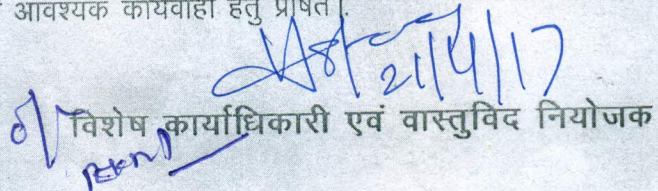 आवश्यक कार्यवाही हेतु प्रेषित।
21/4/17
विशेष कार्याधिकारी एवं वास्तुविद नियोजक